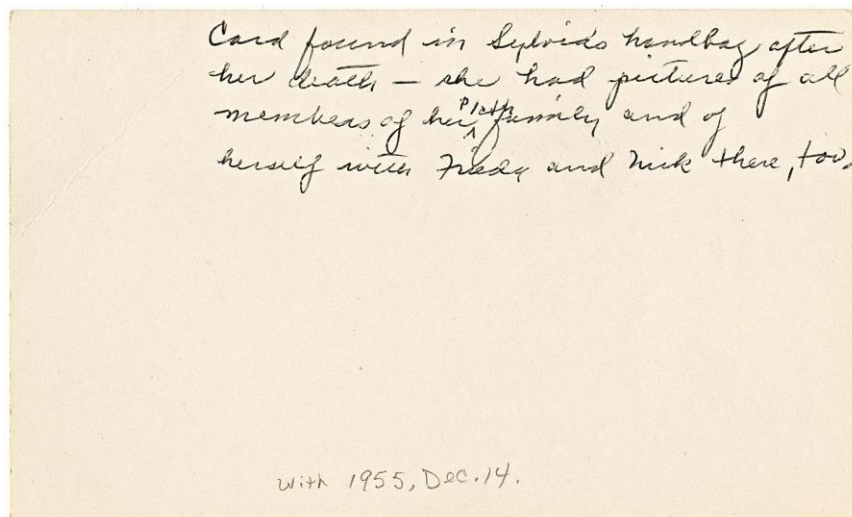 Card found in Sylvia's handbag after
her death — she had pictures of all
members of her ^Plath family and of
herself with Frieda and Nick there, too.
with 1955, Dec. 14.